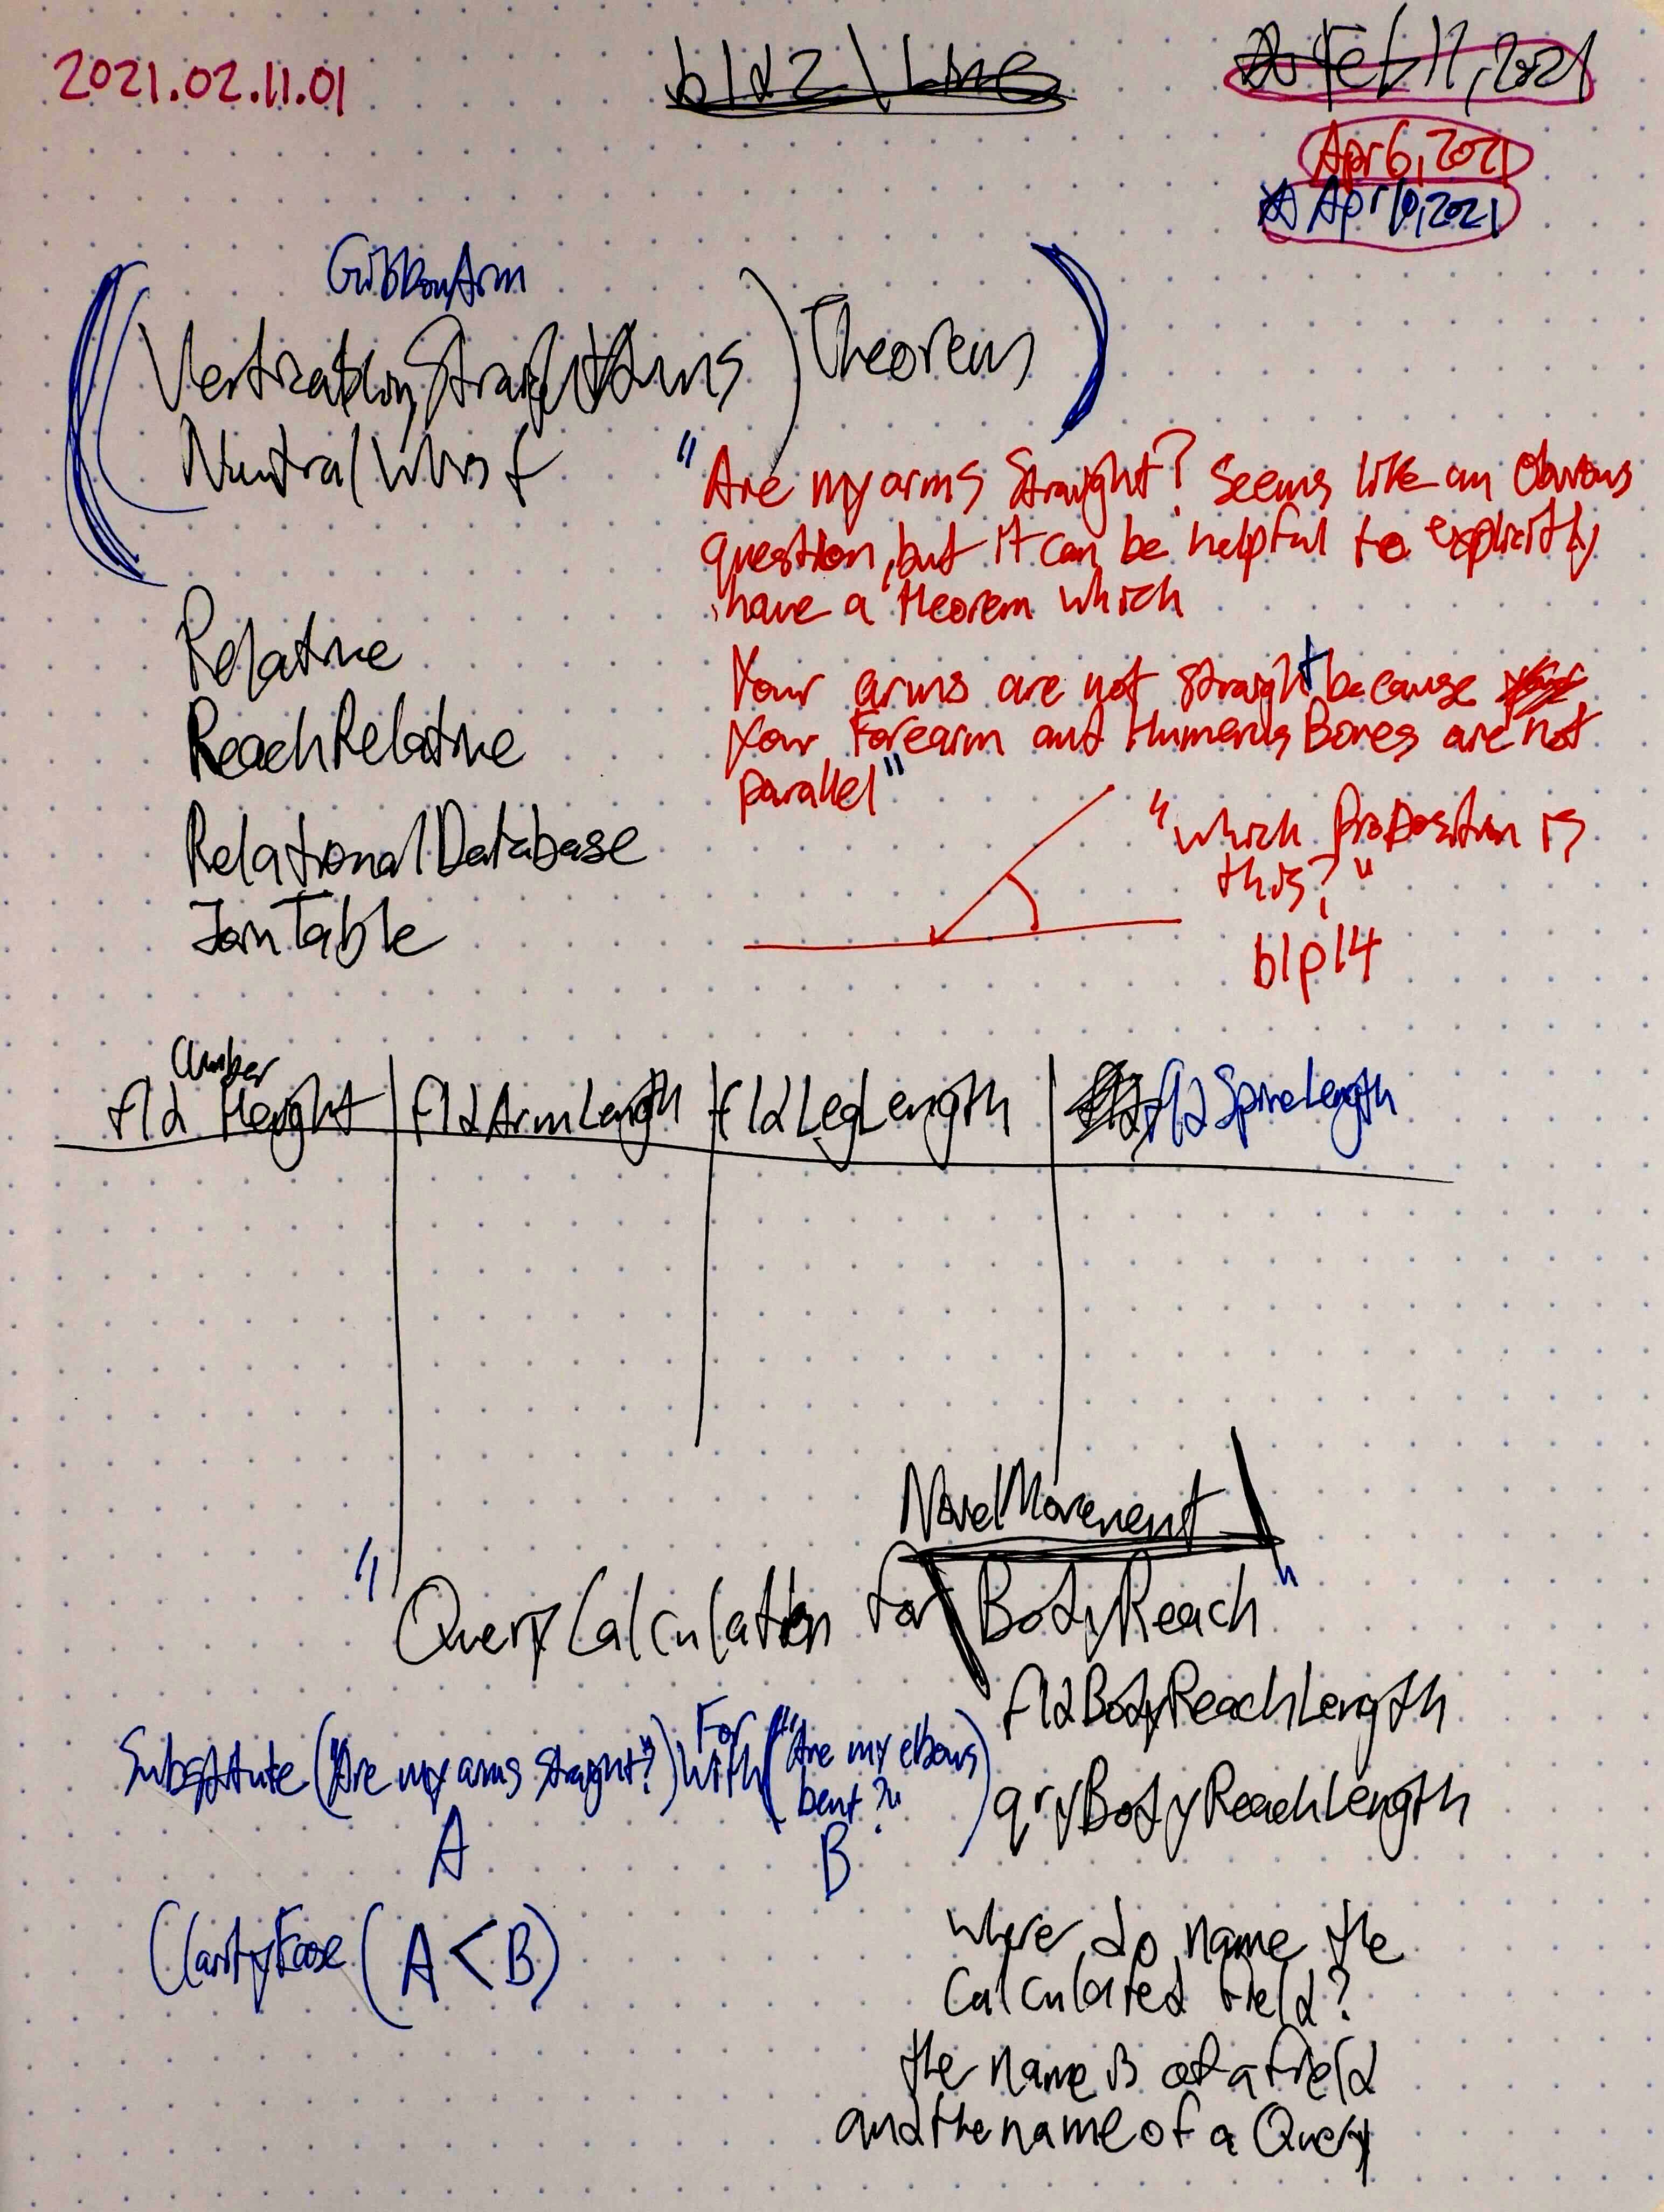 2021.02.11.01
b1d2\Line
Feb 11, 2021
Apr 6, 2021
Apr 10, 2021
GibbonArm
Verticalblon,StraightArms) Theorem
NeutralWrist
"Are my arms straight? Seems like an obvious
question, but it can be helpful to explicitly
have a theorem which
Your arms are not straight because
Your Forearm and Humerus Bones are not
parallel"
Relative
ReachRelative
RelationalDatabase
JoinTable
"which Proposition is
this?"
b1p14
Climber
fld Height | fldArmLength | fldLegLength | fldSpineLength
NovelMovement
"QueryCalculation for BodyReach"
fldBodyReachLength
qryBodyReachLength
For
Substitute ("Are my arms straight?") with ("Are my elbows
bent?")
A B
ClarityEase (A < B)
Where do name the
Calculated field?
the name is of a field
and the name of a Query